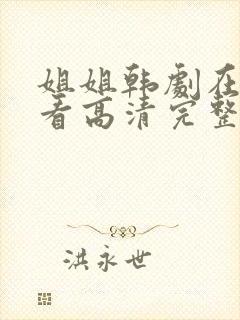 姐姐韩劇在
看高清完整
洪永世